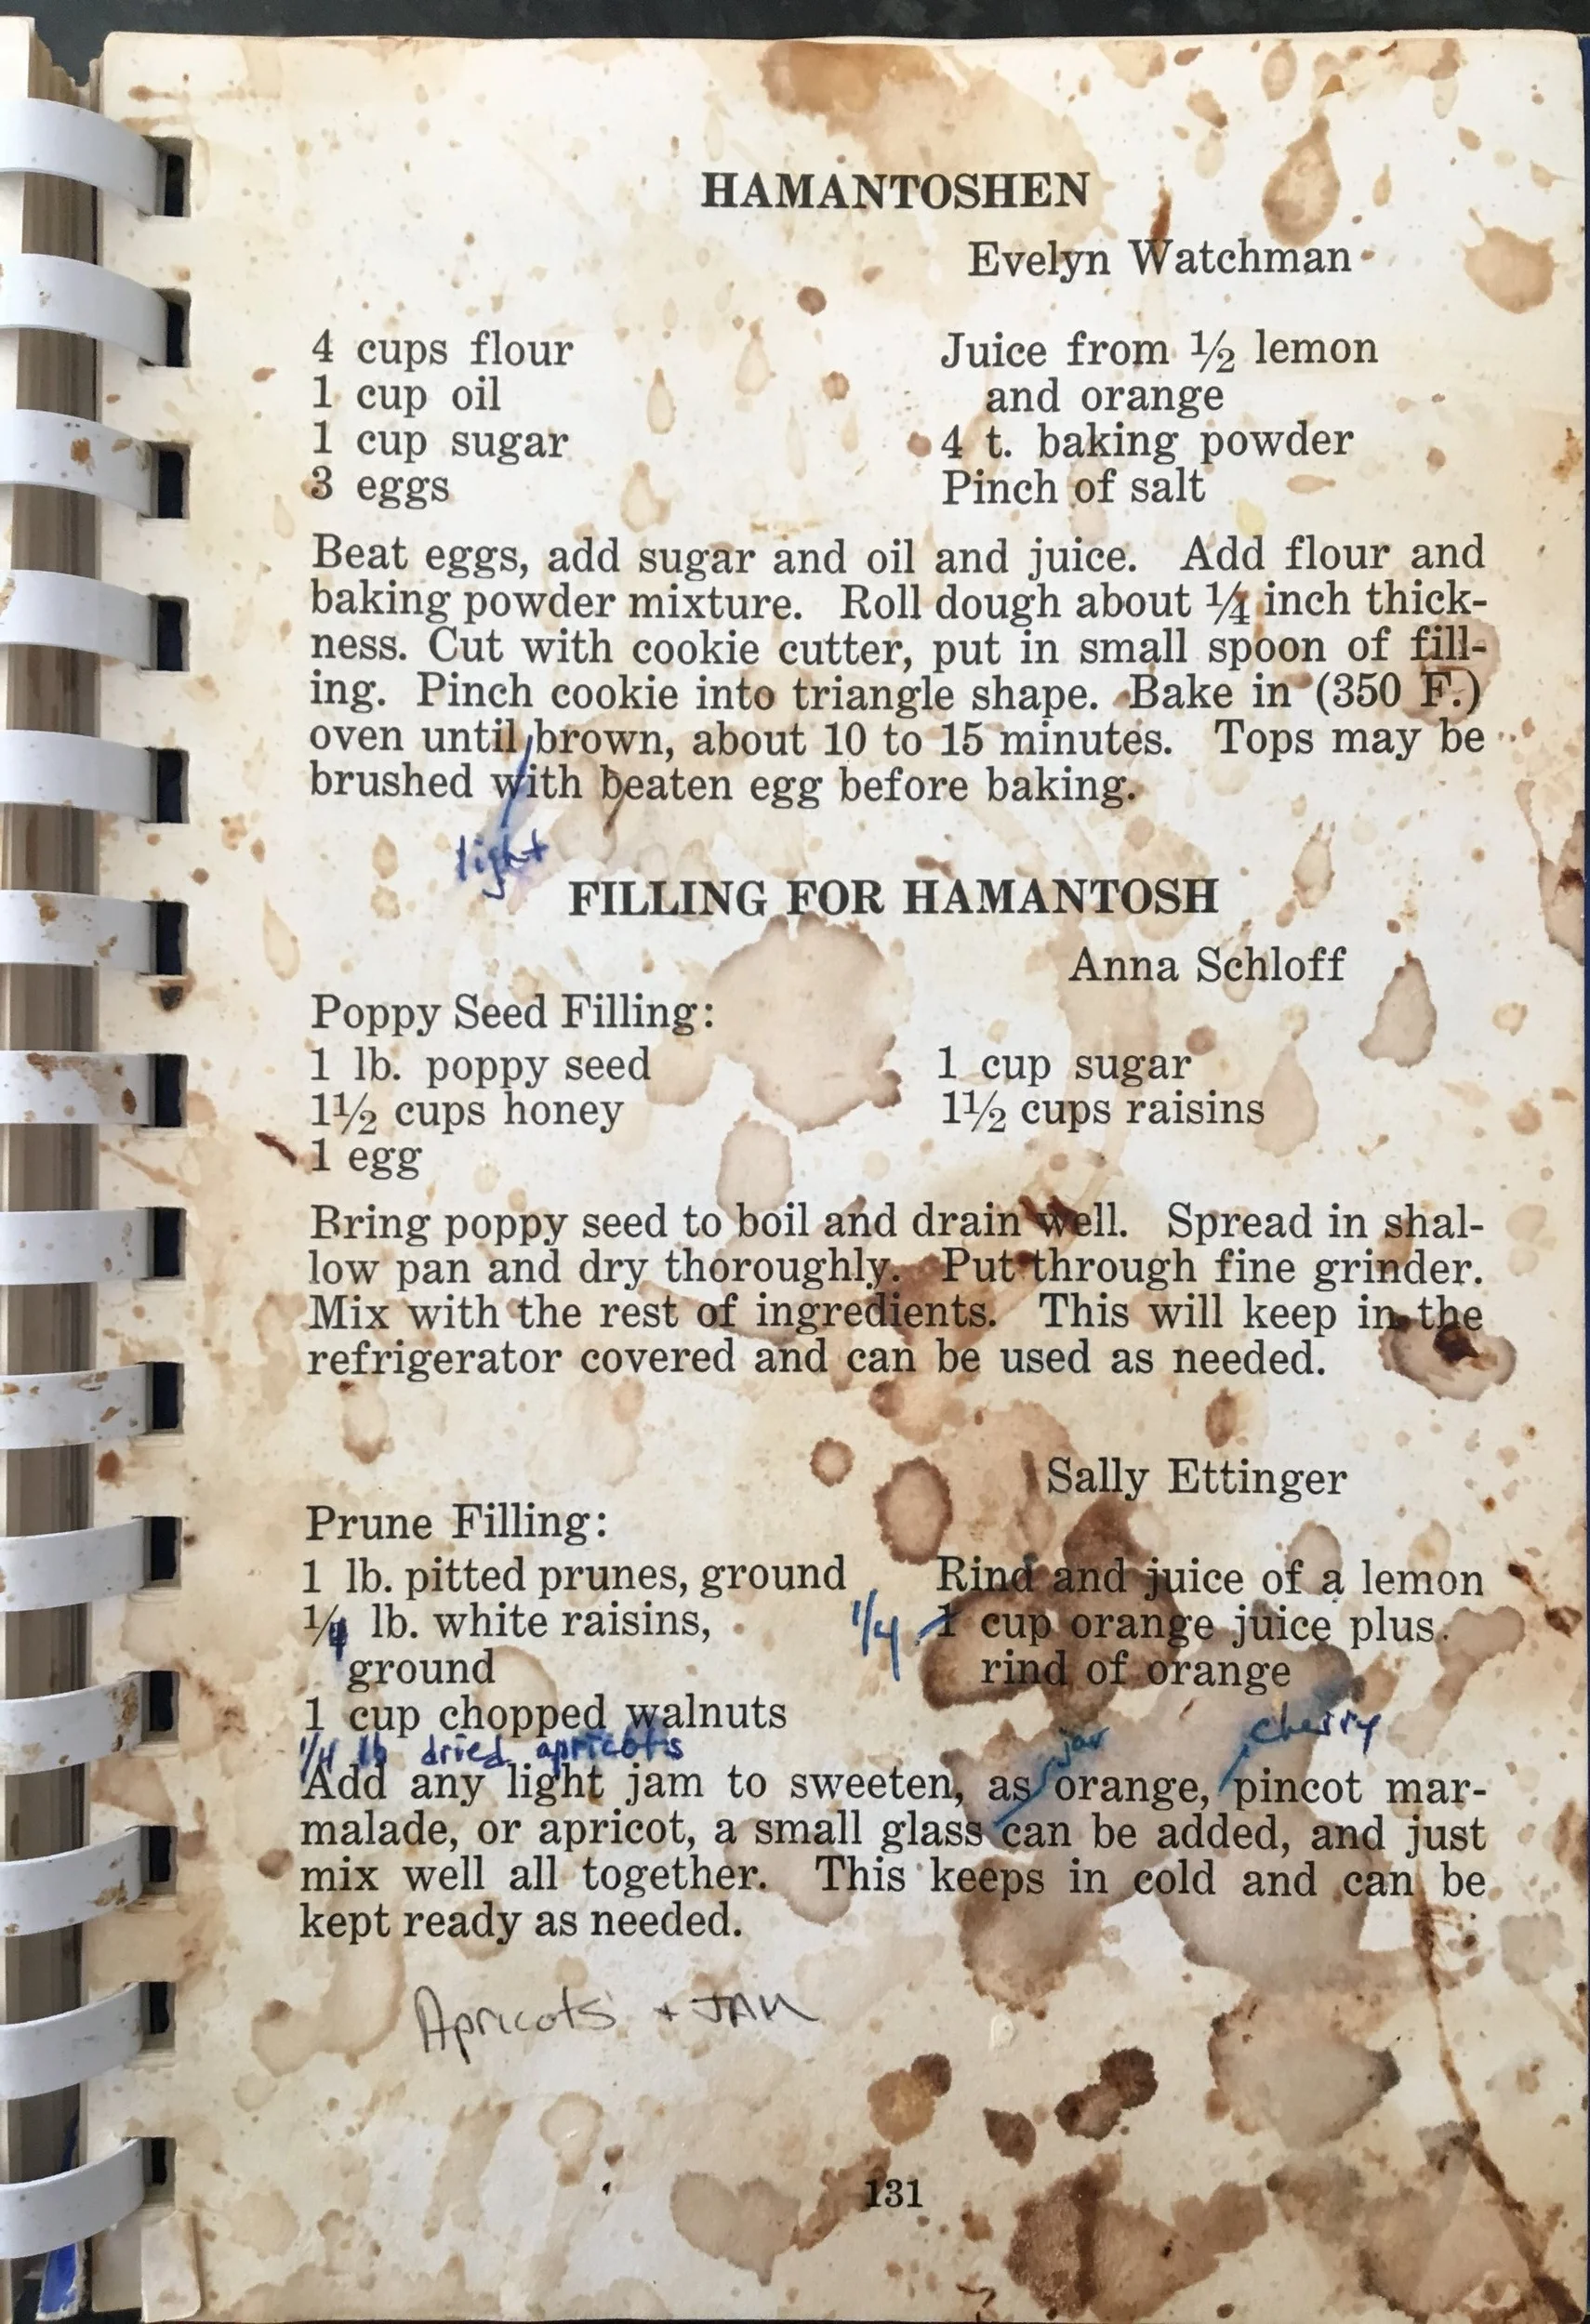 HAMANTOSHEN
Evelyn Watchman
4 cups flour
1 cup oil
1 cup sugar
3 eggs
Juice from ½ lemon
and orange
4 t. baking powder
Pinch of salt
Beat eggs, add sugar and oil and juice. Add flour and
baking powder mixture. Roll dough about ¼ inch thick-
ness. Cut with cookie cutter, put in small spoon of fill-
ing. Pinch cookie into triangle shape. Bake in (350 F.)
oven until brown, about 10 to 15 minutes. Tops may be
brushed with beaten egg before baking.
light
FILLING FOR HAMANTOSH
Anna Schloff
Poppy Seed Filling:
1 lb. poppy seed
1½ cups honey
1 egg
1 cup sugar
1½ cups raisins
Bring poppy seed to boil and drain well. Spread in shal-
low pan and dry thoroughly. Put through fine grinder.
Mix with the rest of ingredients. This will keep in the
refrigerator covered and can be used as needed.
Sally Ettinger
Prune Filling:
1 lb. pitted prunes, ground
¼ lb. white raisins,
ground
1 cup chopped walnuts
1/4 lb dried apricots
Rind and juice of a lemon
1/4 1 cup orange juice plus
rind of orange
jar cherry
Add any light jam to sweeten, as orange, pincot mar-
malade, or apricot, a small glass can be added, and just
mix well all together. This keeps in cold and can be
kept ready as needed.
Apricots + JAM
131